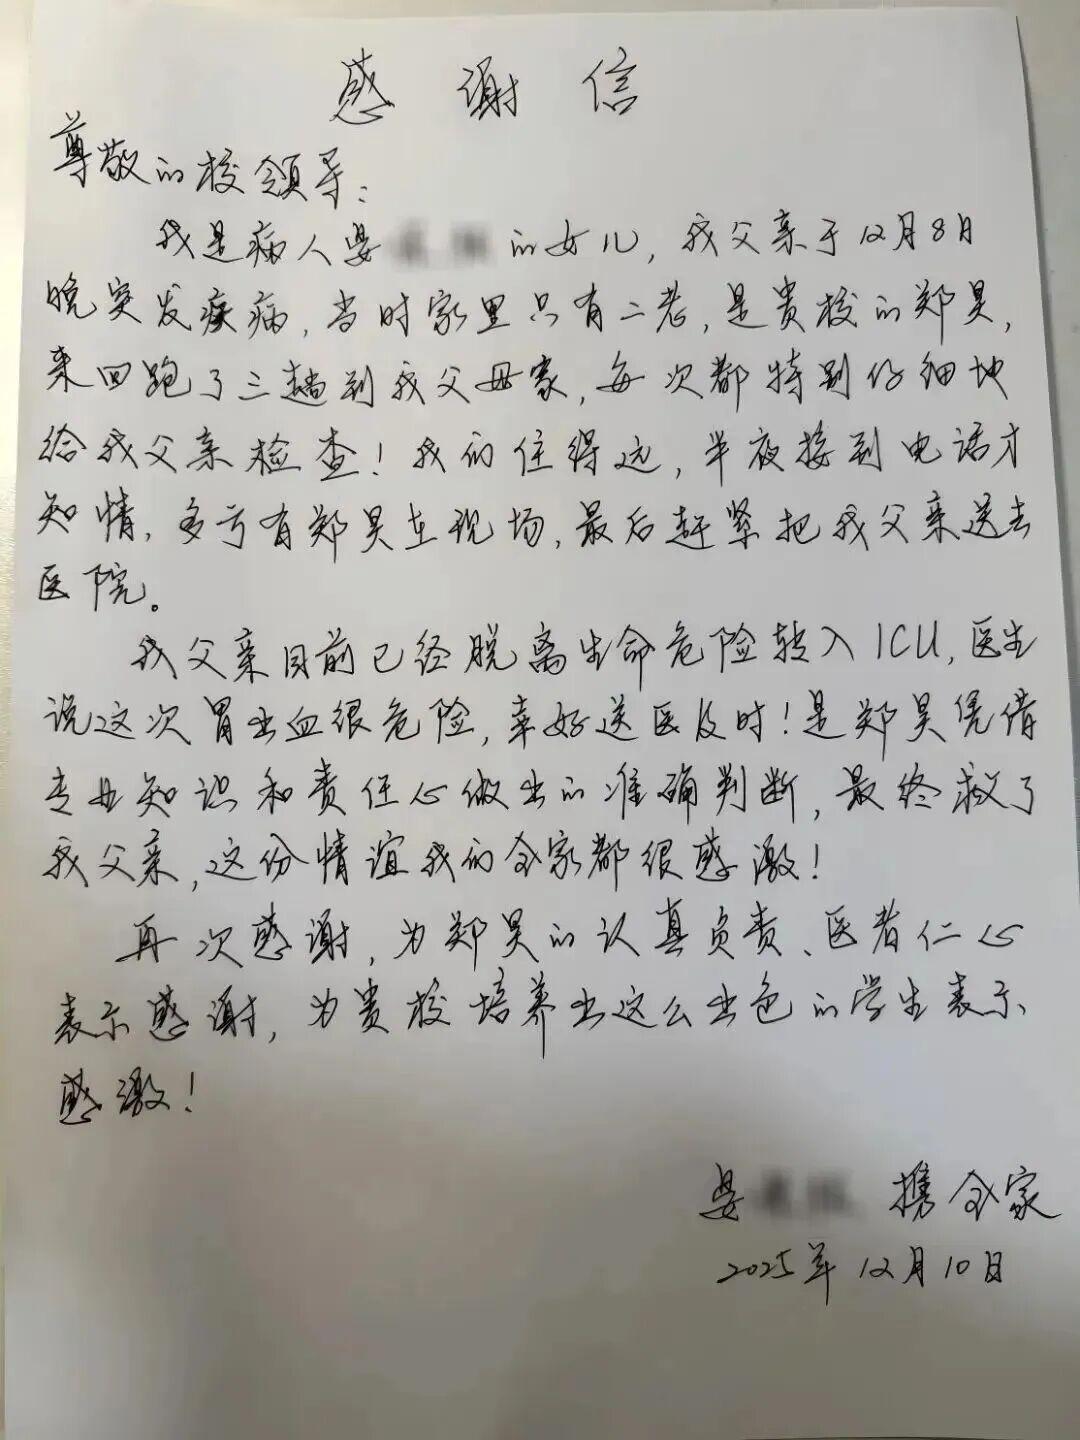 感谢信
尊敬的校领导：
我是病人晏 的女儿，我父亲于12月8日
晚突发疾病，当时家里只有二老，是贵校的郑昊，
来回跑了三趟到我父母家，每次都特别仔细地
给我父亲检查！我们住得远，半夜接到电话才
知情，多亏有郑昊在现场，最后赶紧把我父亲送去
医院。
我父亲目前已经脱离生命危险转入ICU，医生
说这次胃出血很危险，幸好送医及时！是郑昊凭借
专业知识和责任心做出的准确判断，最终救了
我父亲，这份情谊我们全家都很感激！
再次感谢，为郑昊的认真负责、医者仁心
表示感谢，为贵校培养出这么出色的学生表示
感激！
晏 携全家
2025年12月10日